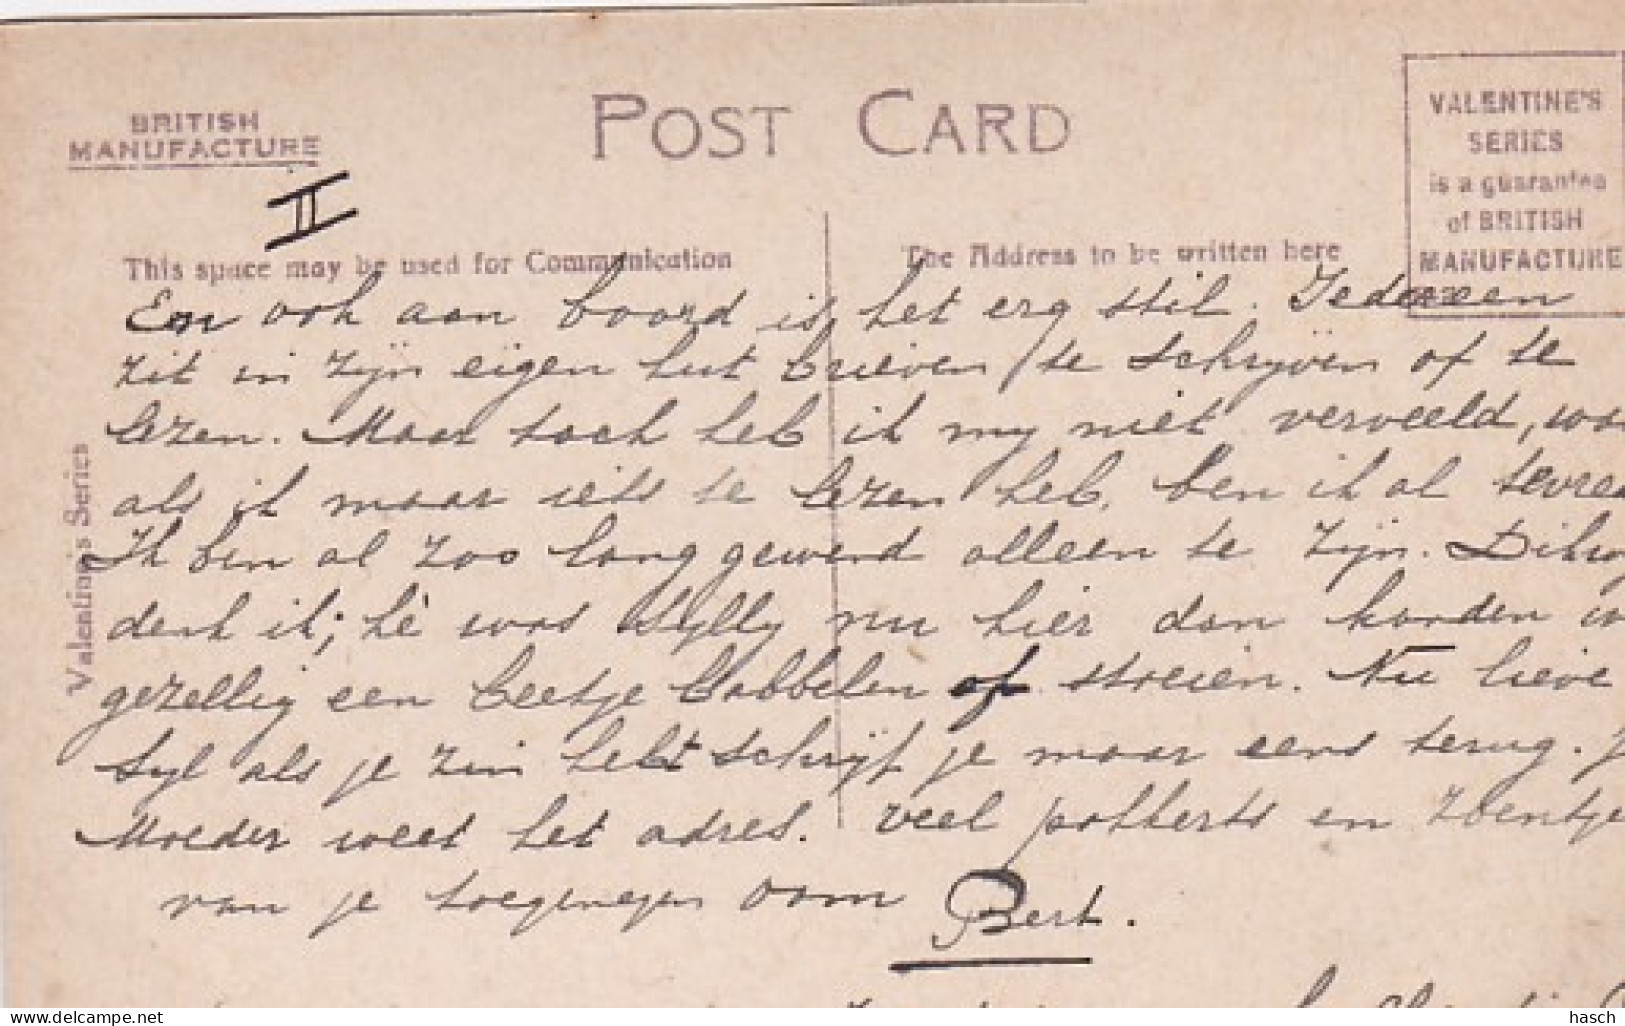 BRITISH
MANUFACTURE
II
POST CARD
VALENTINE'S
SERIES
is a guarantee
of BRITISH
MANUFACTURE
This space may be used for Communication
The Address to be written here
Valentine's Series
En ook aan boord is het erg stil. Iedereen
zit in zijn eigen hut brieven te schrijven of te
lezen. Maar toch heb ik my niet verveeld, wa
als ik maar iets te lezen heb, ben ik al tevree
Ik ben al zoo lang gewend alleen te zijn. Dikw
denk ik; hè was Sylly nu hier dan konden w
gezellig een beetje babbelen of stoeien. Nu lieve
Syl als je zin hebt schrijf je maar eens terug. J
Moeder weet het adres. Veel pakkerts en zoentje
van je toegenegen oom Bert.
delcampe.net
hasch